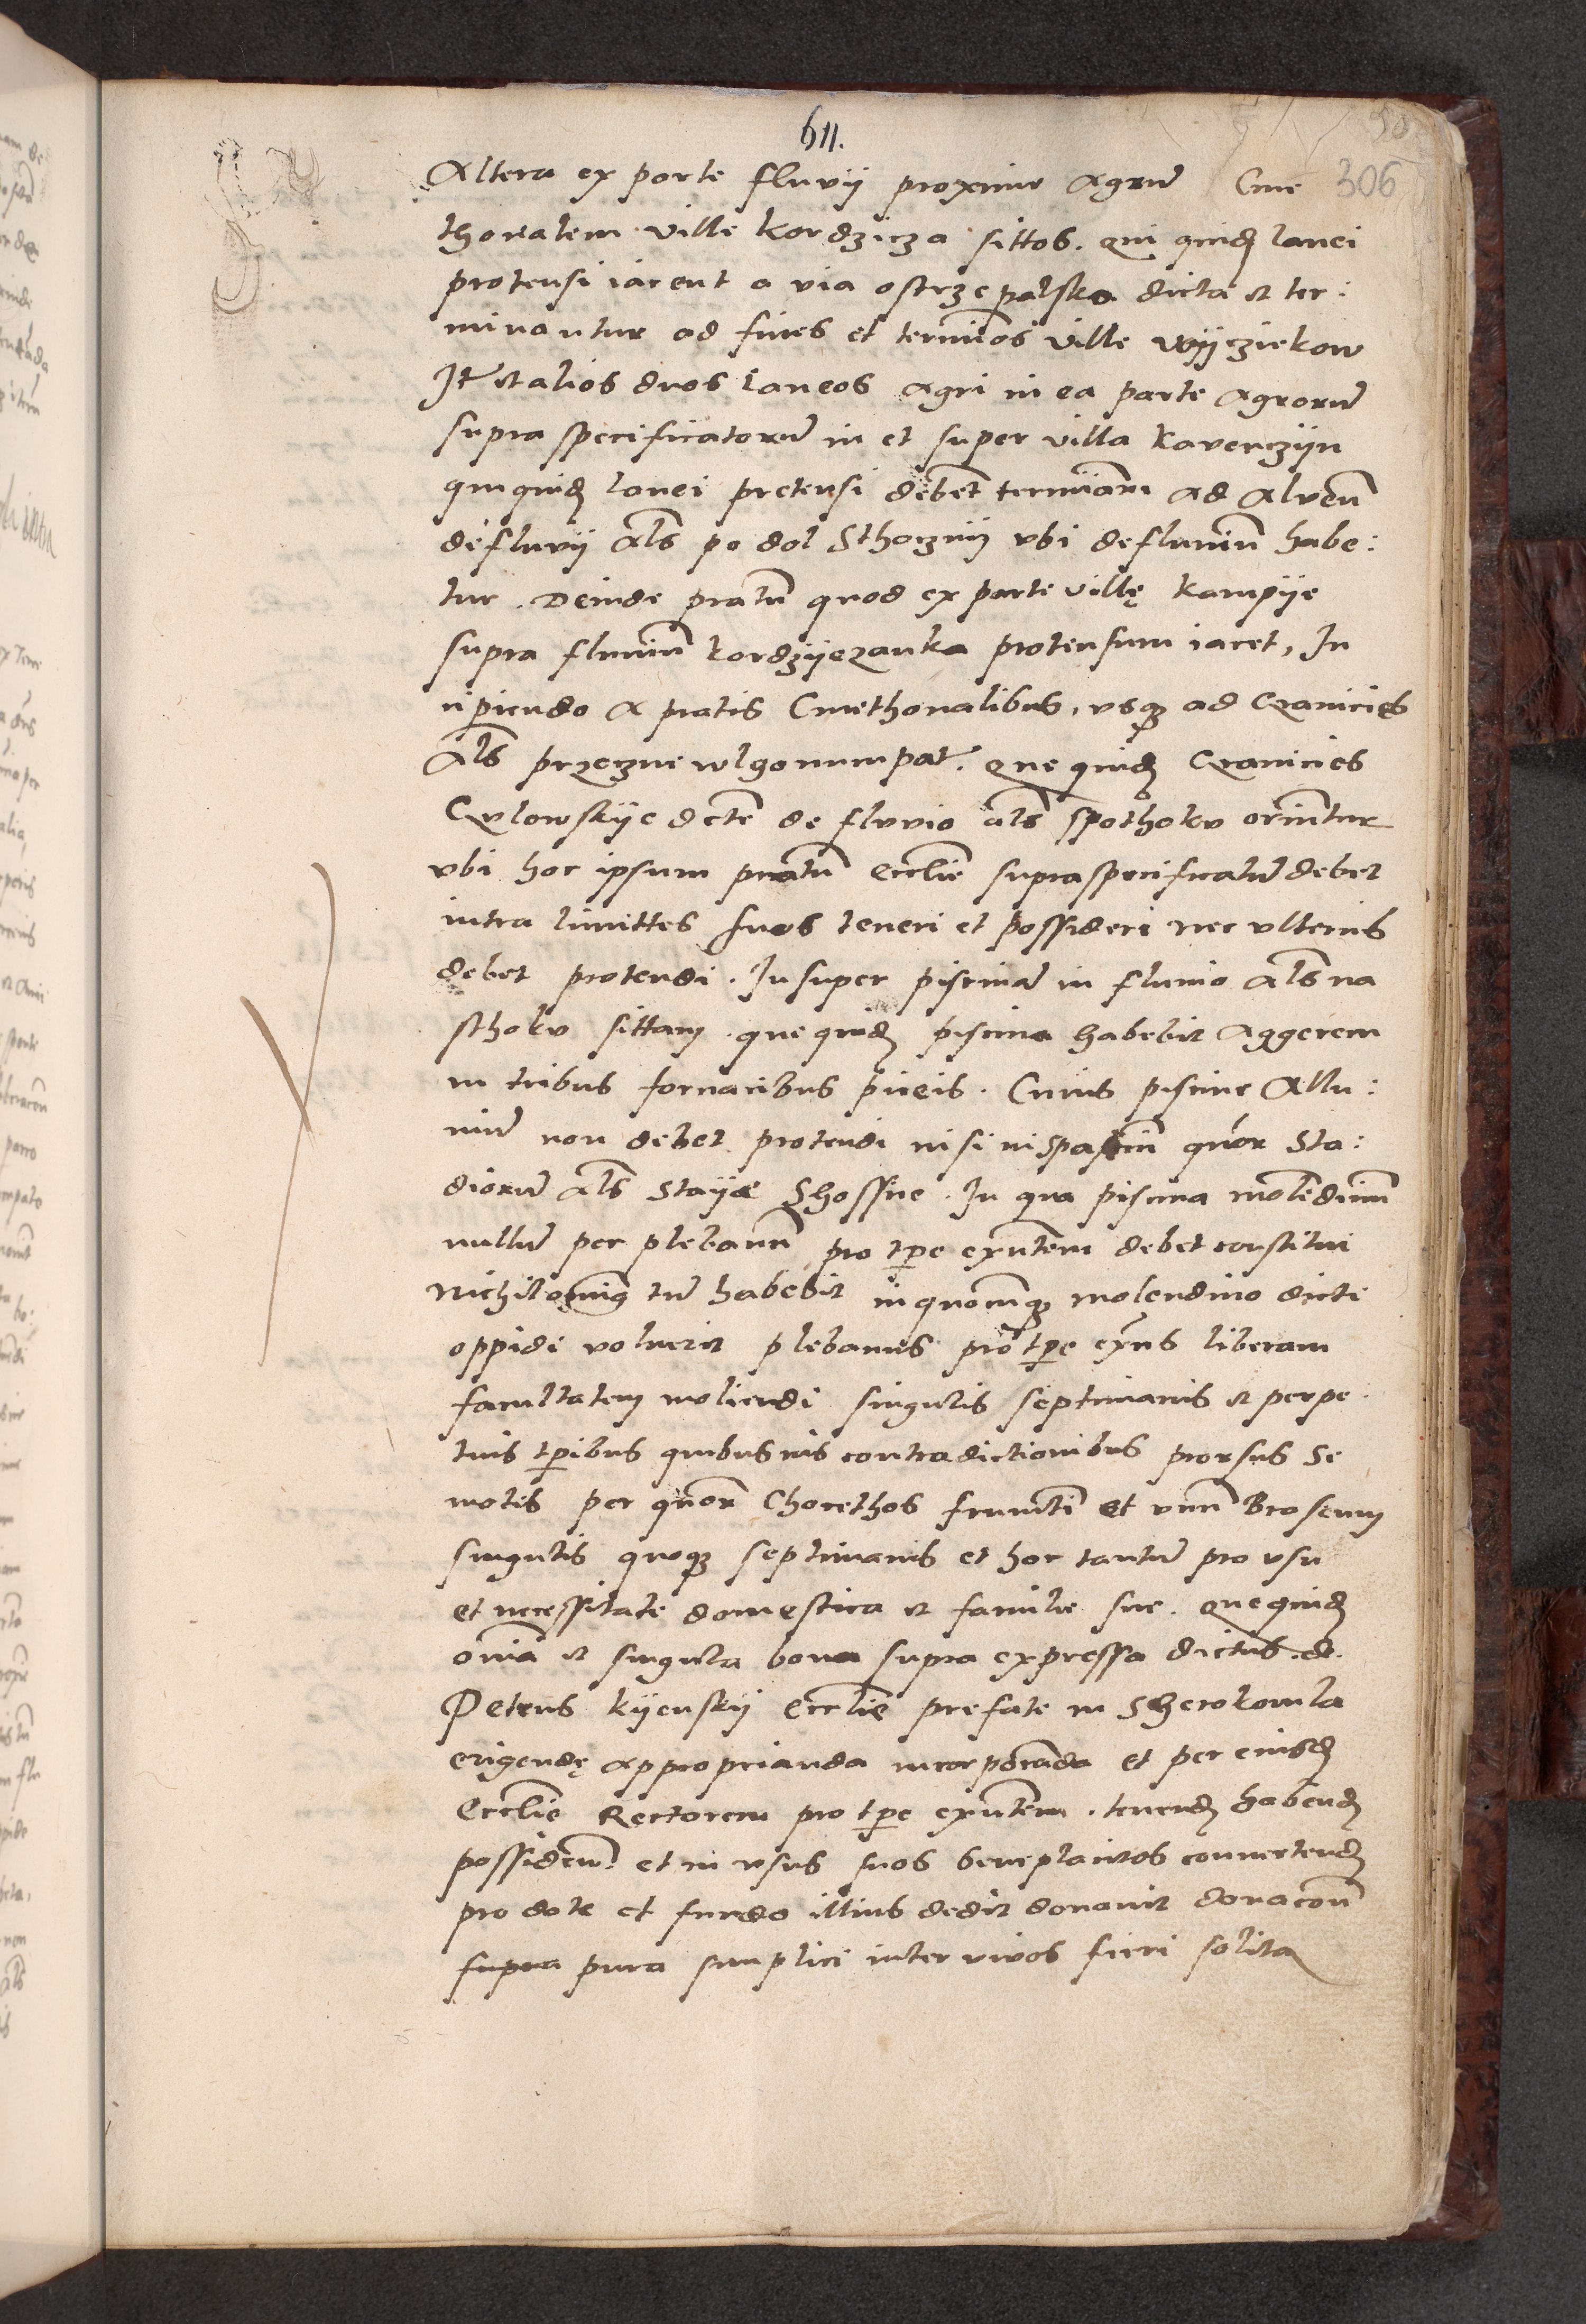 611.
50
306
Altera ex parte fluvij proxime Agrum Cme
thonalem ville kordzicza sittos. qui quidem lanei
protensi iacent a via ostrzepalska dicta et ter:
minantur ad fines et terminos ville Wyjcziekow
Jtem et alios duos laneos Agri in ea parte Agrorum
supra specificatorum in et super villa kavenczijn
qui quidem lanei pretensi debent terminari ad Alveum
defluvij als po dol Sthocznij vbi defluvium habe:
tur. Deinde pratum quod ex parte villę kampije
supra fluvium kordzijezanka protensum iacet, Jn
cipiendo A pratis Cmethonalibus, vsque ad Granicies
Als przeczne wlgo nuncupat. que quidem Granicies
Gulowskije dcte de fluvio als spothoku oriuntur
vbi hoc ipsum pratum Ecclie supraspecificatum debet
intra limittes suos teneri et possideri nec vlterius
debet protendi. Jnsuper piscinam in fluvio Als na
sthoku sittam. que quidem piscina habebit Aggerem
in tribus fornacibus piceis. Cuius piscine Allu:
vium non debet protendi nisi in spacium quor Sta:
diorum Als Stayae Shossne. Jn qua piscina molendinum
nullum per plebanum pro tpre exntem debet constitui
Nichilominus tum habebit in quocunque molendino dicti
oppidi voluerit plebanus pro tpre exns liberam
facultatem moliendi singulis septimanis et perpe
tuis tpribus quibusvis contradictionibus prorsus se
motis per quor Chorethos frumti et vnum Braseum
singulis quoque septimanis et hoc tantum pro vsu
et necessitate domestica et familie sue. que quidem
omnia et singula bona supra expressa dictus. d.
Petrus kijenskij Ecclie prefate in Sherokomla
erigendę approprianda incorporanda et per eiusdem
Ecclie Rectorem pro tpre exntem. tenend habend
possidend et in vsus suos beneplacitos convertend
pro dote et fundo illius dedit donavit donacone
supra pura simplici inter vivos fieri solita